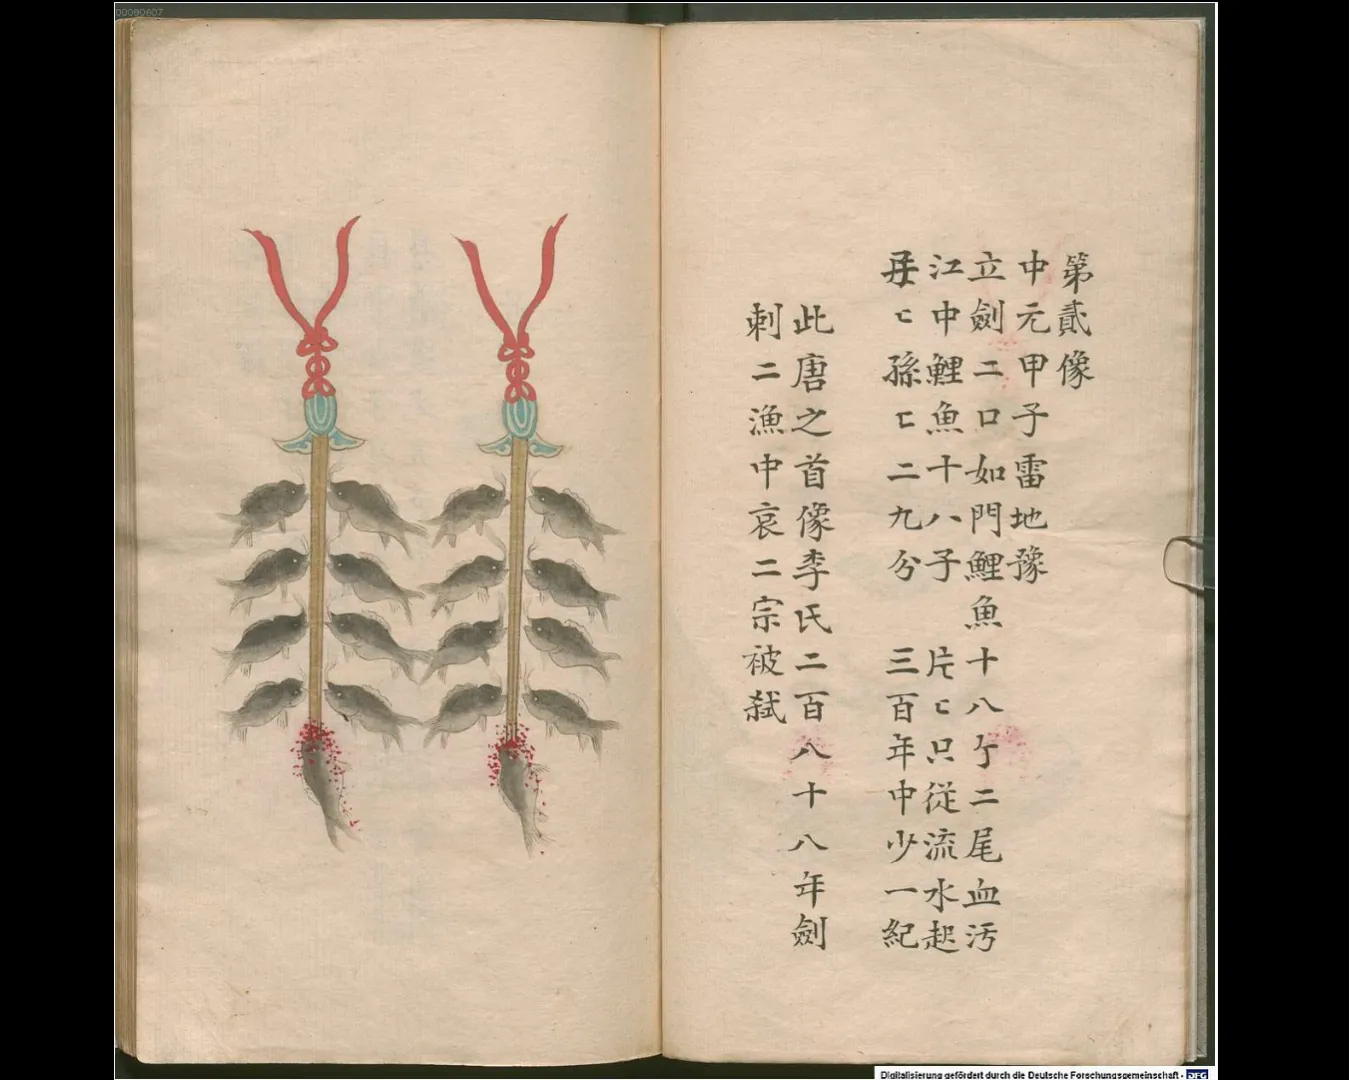 第貳像
中元甲子雷地豫
立劍二口如門鯉魚十八亇二尾血污
江中鯉魚十八子 片〻只從流水起
〻孫〻二九分 三百年中少一紀
此唐之首像李氏二百八十八年劍
刺二漁中哀二宗被弑
00090607
Digitalisierung gefördert durch die Deutsche Forschungsgemeinschaft - DFG